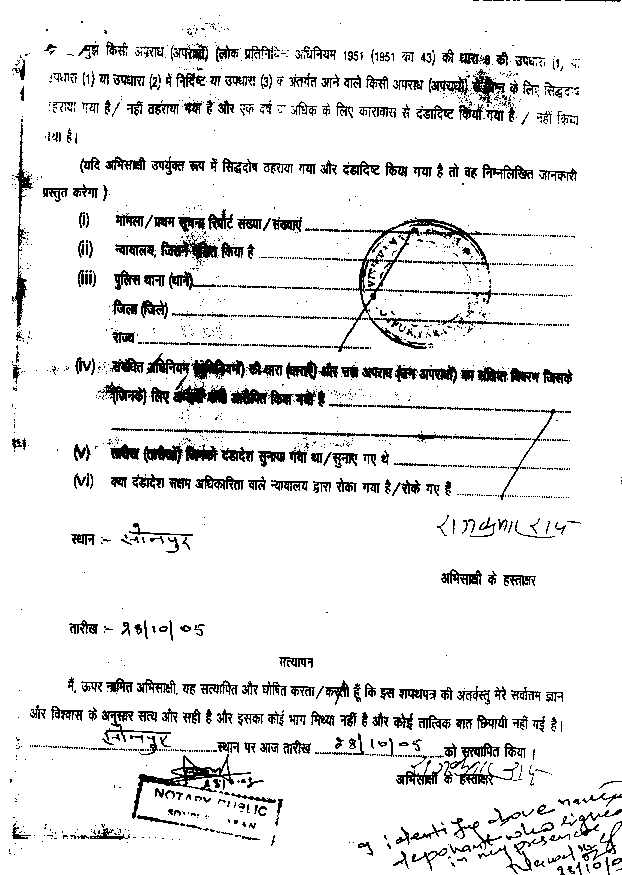 मुझे किसी अपराध (अपराधों) (लोक प्रतिनिधित्व अधिनियम 1951 (1951 का 43) की धारा 8 की उपधारा (1) या
उपधारा (1) या उपधारा (2) में निर्दिष्ट या उपधारा (3) के अंतर्गत आने वाले किसी अपराध (अपराधों) के लिए सिद्धदोष
ठहराया गया है / नहीं ठहराया गया है और एक वर्ष या अधिक के लिए कारावास से दंडादिष्ट किया गया है / नहीं किया
गया है।
(यदि अभिसाक्षी उपर्युक्त रूप में सिद्धदोष ठहराया गया और दंडादिष्ट किया गया है तो वह निम्नलिखित जानकारी
प्रस्तुत करेगा )
(i) मामला/प्रथम सूचना रिपोर्ट संख्या/संख्याएं
(ii) न्यायालय, जिसने दंडित किया है
(iii) पुलिस थाना (थाने)
जिला (जिले)
राज्य
(iv) संबंधित अधिनियम (अधिनियमों) की धारा (धाराएँ) और उस अपराध (उन अपराधों) का संक्षिप्त विवरण जिसके
(जिनके) लिए किया गया है
(v) तारीख (तारीखें) जिनको दंडादेश सुनाया गया था/सुनाए गए थे
(vi) क्या दंडादेश सक्षम अधिकारिता वाले न्यायालय द्वारा रोका गया है/रोके गए हैं
राजकुमार राय
स्थान :- सोनपुर
अभिसाक्षी के हस्ताक्षर
तारीख :- 28/10/05
सत्यापन
मैं, ऊपर नामित अभिसाक्षी, यह सत्यापित और घोषित करता/करती हूँ कि इस शपथपत्र की अंतर्वस्तु मेरे सर्वोत्तम ज्ञान
और विश्वास के अनुसार सत्य और सही है और इसका कोई भाग मिथ्या नहीं है और कोई तात्विक बात छिपायी नहीं गई है।
सोनपुर स्थान पर आज तारीख 28/10/05 को सत्यापित किया।
राजकुमार राय
अभिसाक्षी के हस्ताक्षर
NOTARY PUBLIC
I identify above named
deponent who signed
in my presence
28/10/05